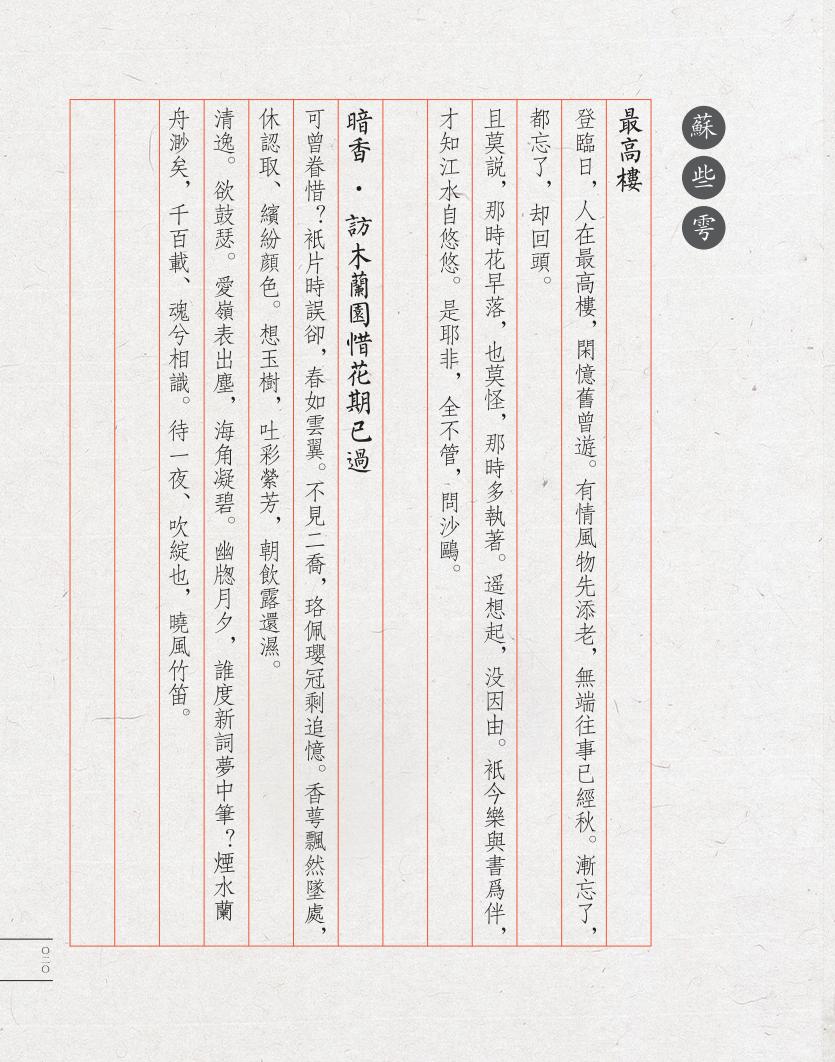 蘇些雩
最高樓
登臨日，人在最高樓，閑憶舊曾遊。有情風物先添老，無端往事已經秋。漸忘了，
都忘了，却回頭。
且莫説，那時花早落，也莫怪，那時多執著。遥想起，没因由。衹今樂與書爲伴，
才知江水自悠悠。是耶非，全不管，問沙鷗。
暗香·訪木蘭園惜花期已過
可曾眷惜？衹片時誤卻，春如雲翼。不見二喬，珞佩瓔冠剩追憶。香萼飄然墜處，
休認取、繽紛顔色。想玉樹，吐彩縈芳，朝飲露還濕。
清逸。欲鼓瑟。愛嶺表出塵，海角凝碧。幽牎月夕，誰度新詞夢中筆？煙水蘭
舟渺矣，千百載、魂兮相識。待一夜、吹綻也，曉風竹笛。
〇二〇